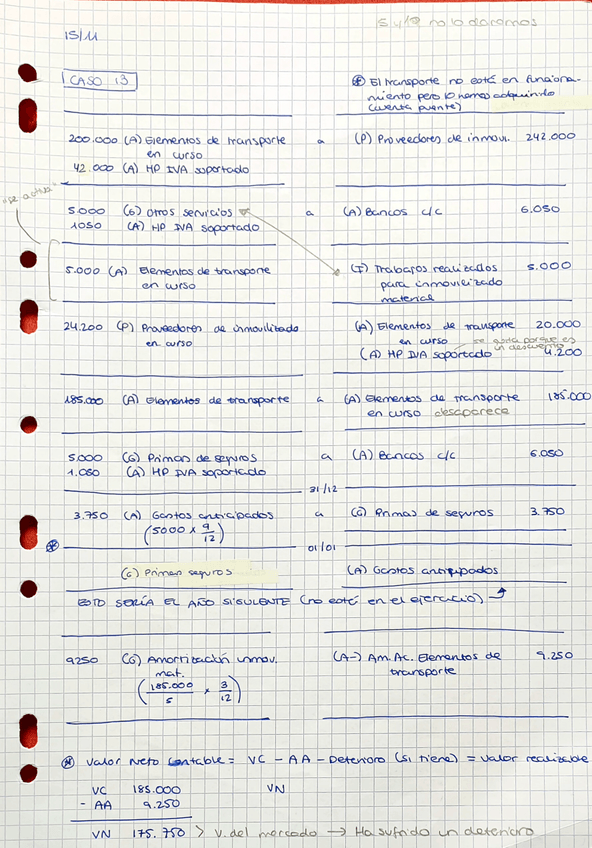 5 y 12 no lo daremos
15/11
CASO 13
* El transporte no está en funciona-
miento pero lo hemos adquirido
(cuenta puente)
200.000 (A) Elementos de transporte a (P) Proveedores de inmovi. 242.000
en curso
42.000 (A) HP IVA soportado
"se activa"
5.000 (G) Otros servicios a (A) Bancos c/c 6.050
1050 (A) HP IVA soportado
5.000 (A) Elementos de transporte (I) Trabajos realizados 5.000
en curso para inmovilizado
material
24.200 (P) Proveedores de inmovilizado (A) Elementos de transporte 20.000
en curso en curso se quita porque es
un descuento
(A) HP IVA soportado 4.200
185.000 (A) Elementos de transporte a (A) Elementos de transporte 185.000
en curso desaparece
5.000 (G) Primas de seguros a (A) Bancos c/c 6.050
1.050 (A) HP IVA soportado
31/12
3.750 (A) Gastos anticipados a (G) Primas de seguros 3.750
(5000 x 9/12)
*
01/01
(G) Primas seguros (A) Gastos anticipados
ESTO SERÍA EL AÑO SIGUIENTE (no está en el ejercicio)
9250 (G) Amortización inmov. (A-) Am. Ac. Elementos de 9.250
mat. transporte
(185.000/5 x 3/12)
* Valor Neto Contable = VC - AA - Deterioro (si tiene) = Valor realizable
VC 185.000 VN
- AA 9.250
VN 175.750 > V. del mercado → Ha sufrido un deterioro